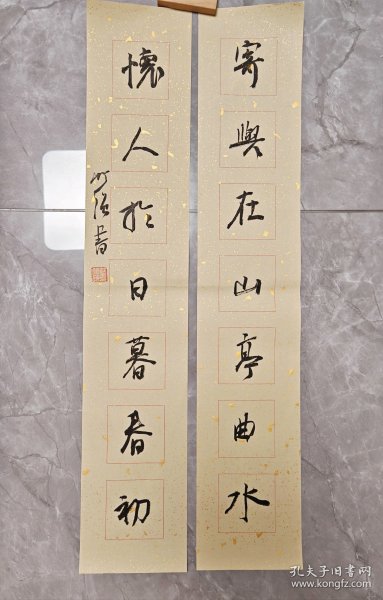 寄興在山亭曲水
懷人於日暮春初
孔夫子旧书网
www.kongfz.com